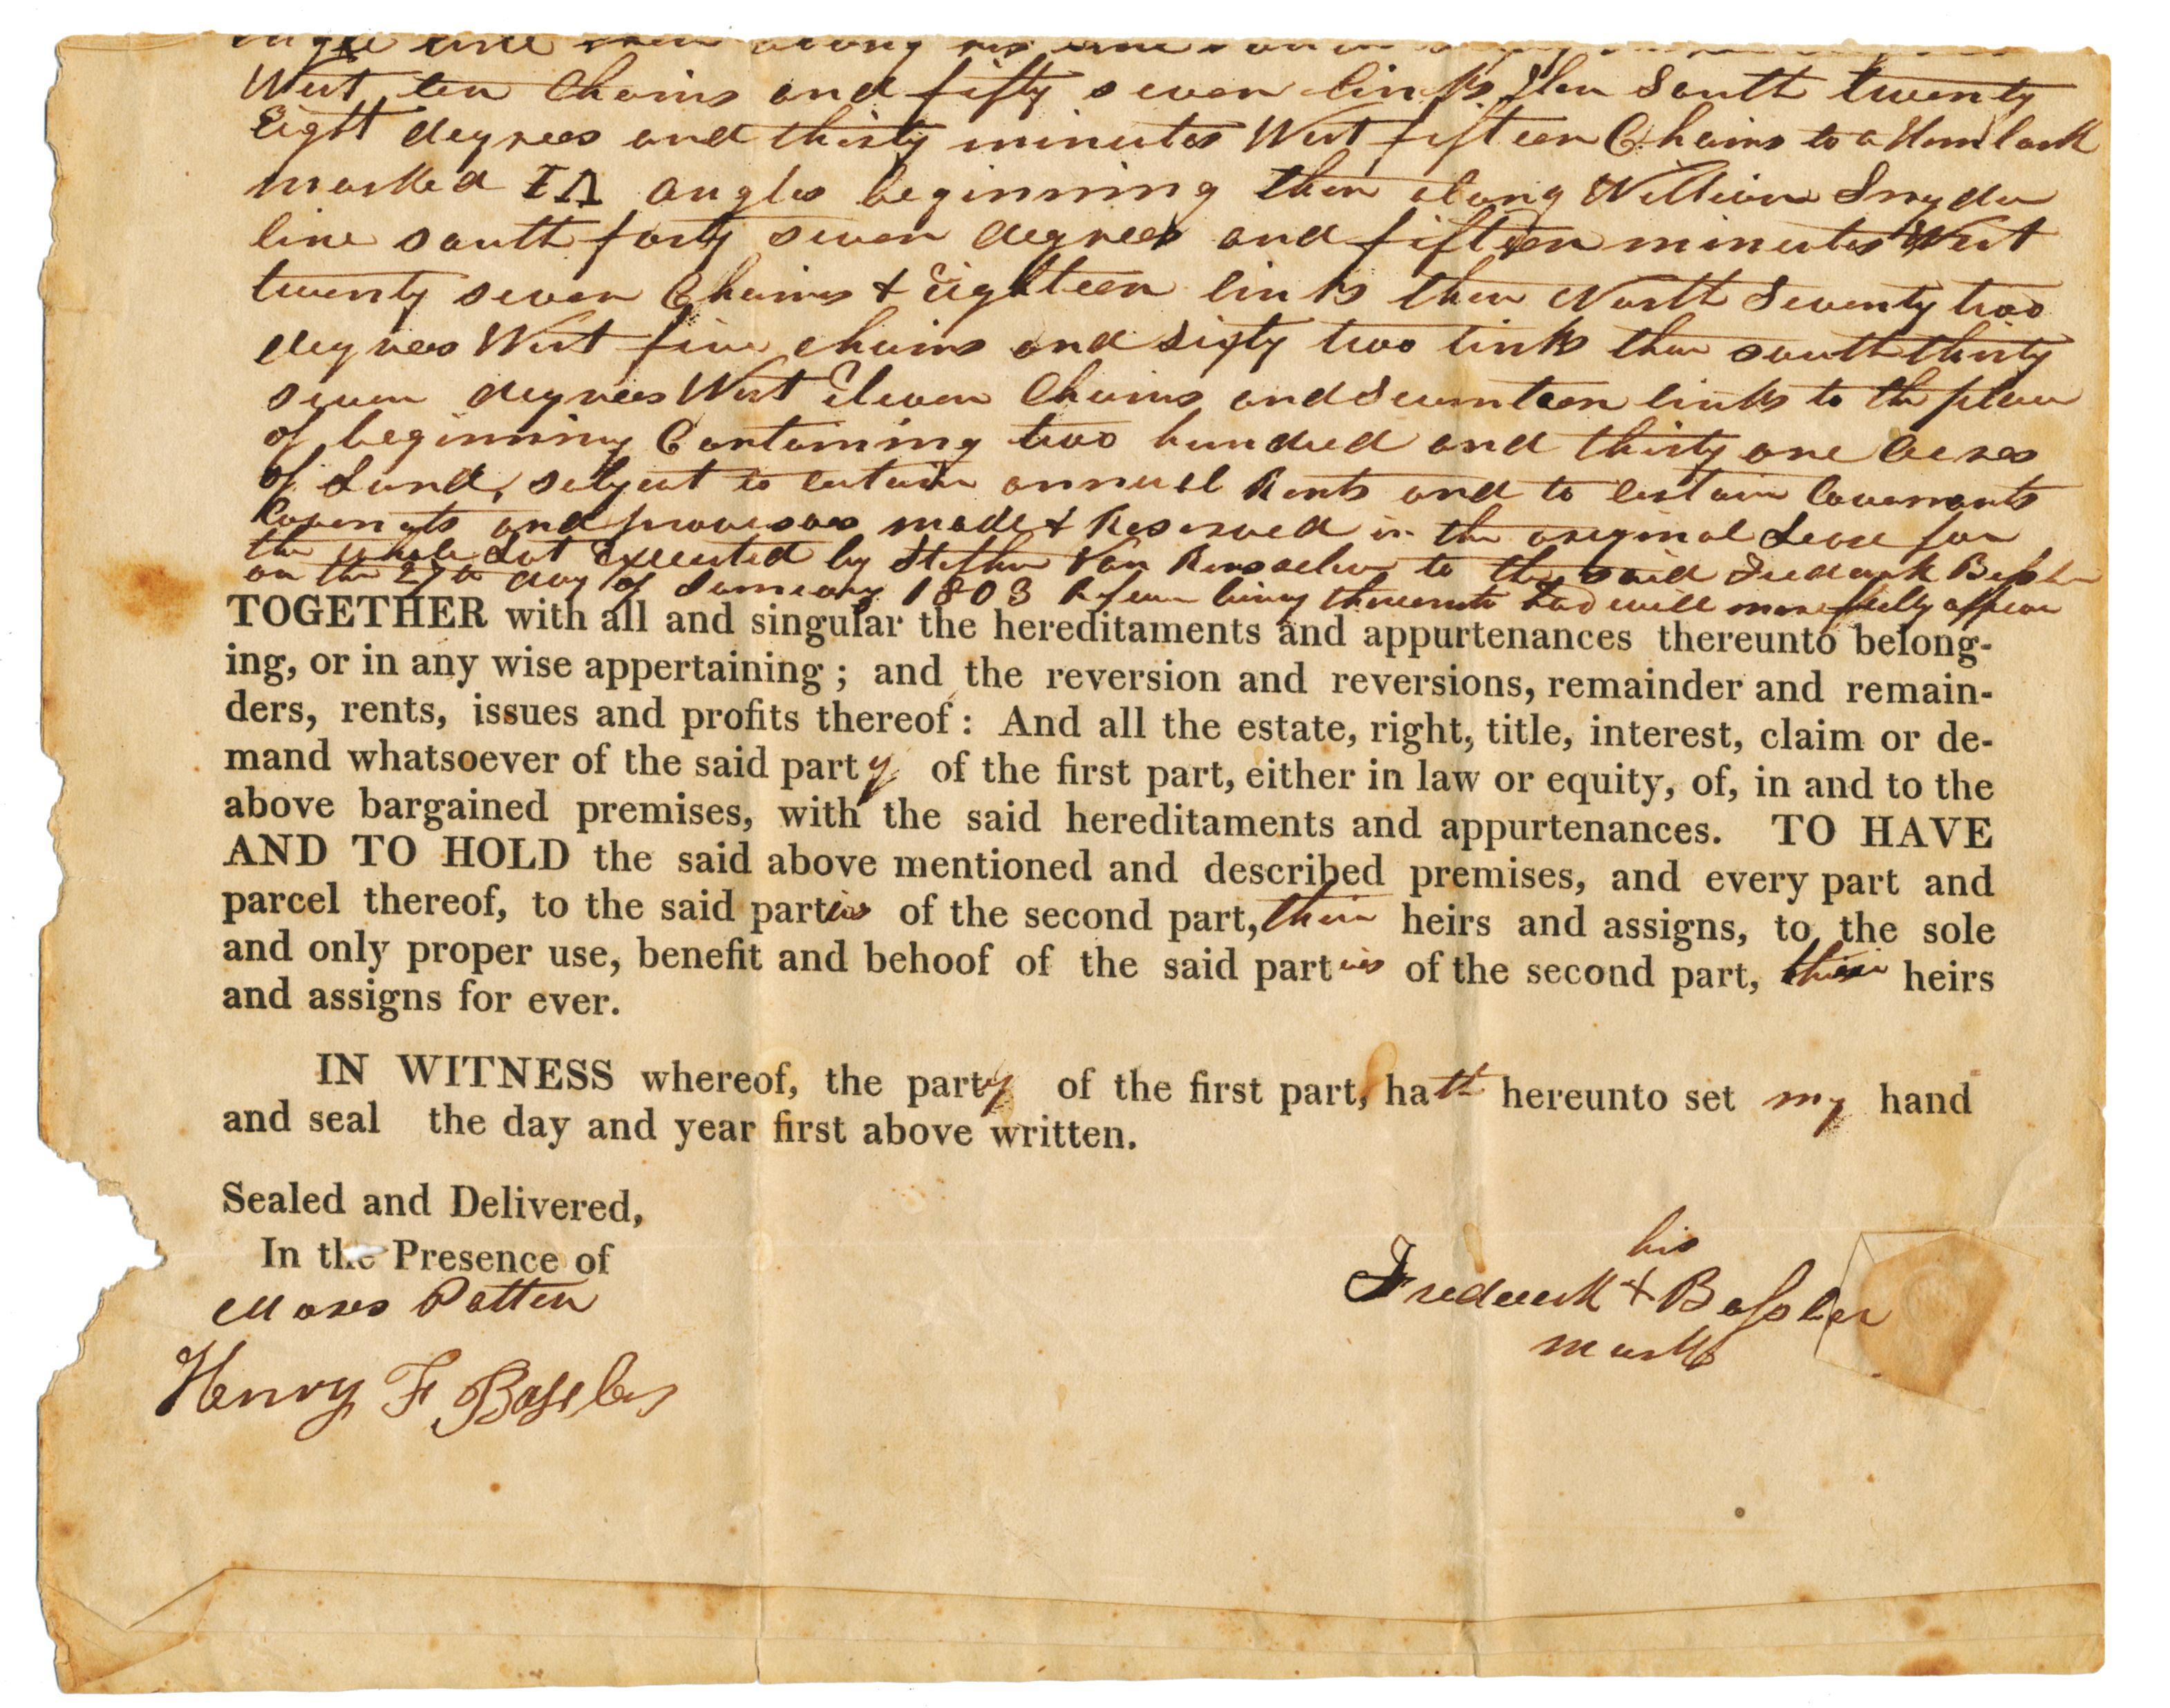 West ten Chains and fifty seven links then South twenty
Eight degrees and thirty minutes West fifteen Chains to a Hemlock
marked angles beginning then along William Snyder
line south forty seven degrees and fifteen minutes West
twenty seven Chains & Eighteen links then North Seventy two
degrees West five chains and sixty two links then south thirty
seven degrees West Eleven Chains and Seventeen links to the place
of beginning Containing two hundred and thirty one Acres
of Land, subject to certain annual Rents and to certain Covenants
Covenants and provisoes made & Reserved in the original Lease for
the whole Lot Executed by Stephen Van Renselaer to the said Frederick Bessler
on the 27th day of January 1803 Refference being thereunto had will more fully appear
TOGETHER with all and singular the hereditaments and appurtenances thereunto belong-
ing, or in any wise appertaining ; and the reversion and reversions, remainder and remain-
ders, rents, issues and profits thereof : And all the estate, right, title, interest, claim or de-
mand whatsoever of the said party of the first part, either in law or equity, of, in and to the
above bargained premises, with the said hereditaments and appurtenances. TO HAVE
AND TO HOLD the said above mentioned and described premises, and every part and
parcel thereof, to the said parties of the second part, their heirs and assigns, to the sole
and only proper use, benefit and behoof of the said parties of the second part, their heirs
and assigns for ever.
IN WITNESS whereof, the party of the first part, hath hereunto set my hand
and seal the day and year first above written.
Sealed and Delivered,
In the Presence of
Moses Patten
Henry F Bassler
his
Frederick + Bassler
mark